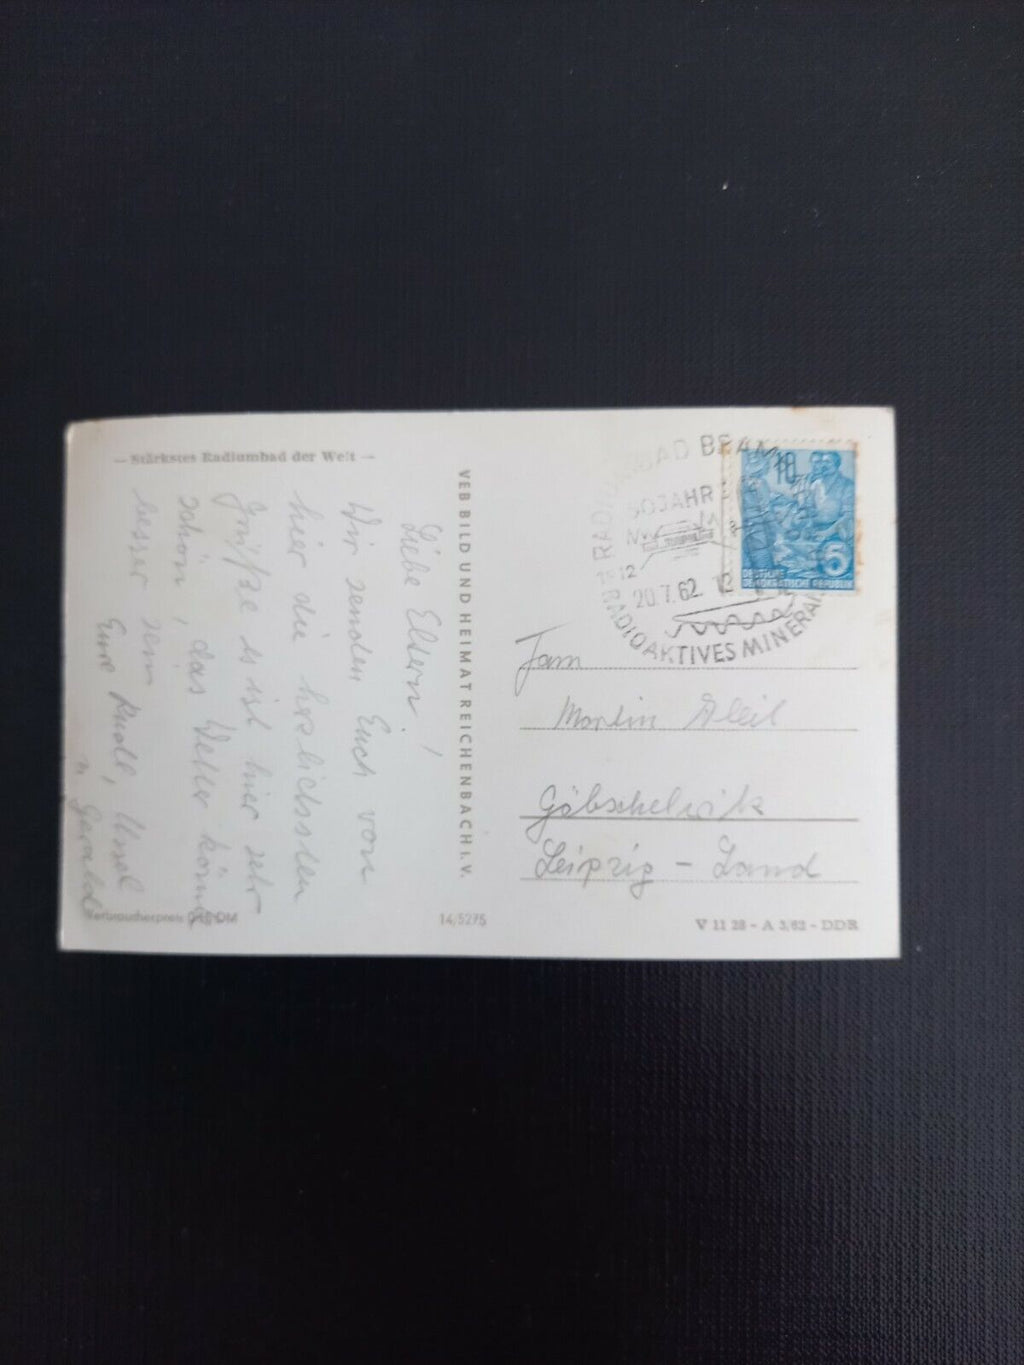 — Stärkstes Radiumbad der Welt —
Liebe Eltern!
Wir senden Euch von
hier die herzlichsten
Grüße es ist hier sehr
schön, das Wetter könnte
besser sein
Eure Rudi, Ursel
u. Gerald
Verbraucherpreis 0,15 DM
VEB BILD UND HEIMAT REICHENBACH i. V.
14/5275
RADIUMBAD BRAMB
50 JAHR
1912
20.7.62. 12
RADIOAKTIVES MINERAL
10
5
DEUTSCHE
DEMOKRATISCHE REPUBLIK
Fam
Martin
Göbschelwitz
Leipzig - Land
V 11 28 - A 3/62 - DDR